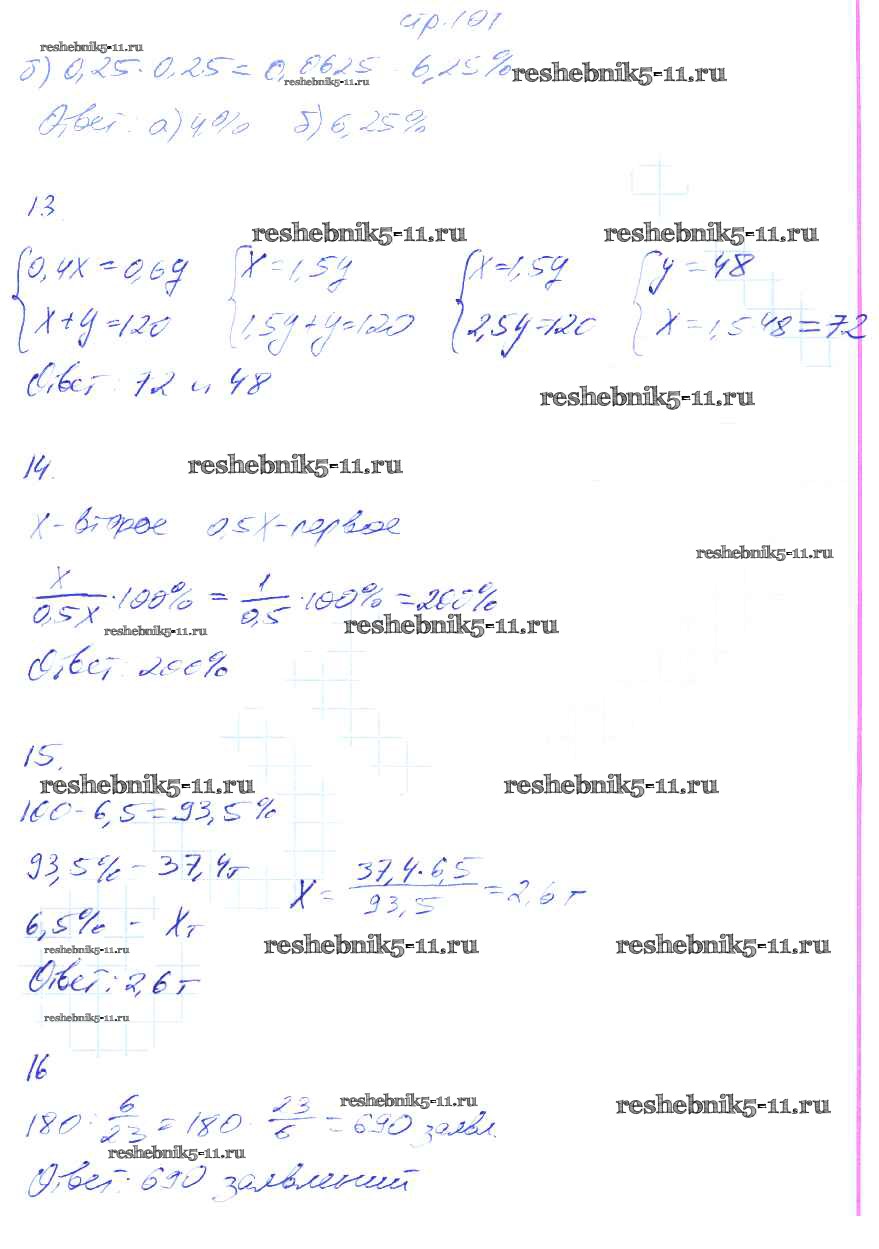 стр. 101
reshebnik5-11.ru
б) 0,25·0,25=0,0625 6,25% reshebnik5-11.ru
reshebnik5-11.ru
Ответ: а) 4% б) 6,25%
13.
reshebnik5-11.ru reshebnik5-11.ru
0,4x=0,6y x=1,5y x=1,5y y=48
x+y=120 1,5y+y=120 2,5y=120 x=1,5·48=72
Ответ: 72 и 48
reshebnik5-11.ru
14. reshebnik5-11.ru
x-второе 0,5x-первое
reshebnik5-11.ru
x/0,5x·100% = 1/0,5·100%=200%
reshebnik5-11.ru reshebnik5-11.ru
Ответ: 200%
15.
reshebnik5-11.ru reshebnik5-11.ru
100-6,5=93,5%
93,5% - 37,4т x = 37,4·6,5/93,5 = 2,6 т
6,5% - xт
reshebnik5-11.ru reshebnik5-11.ru reshebnik5-11.ru
Ответ: 2,6 т
reshebnik5-11.ru
16
reshebnik5-11.ru reshebnik5-11.ru
180 : 6/23 = 180 · 23/6 = 690 заявл.
reshebnik5-11.ru
Ответ: 690 заявлений